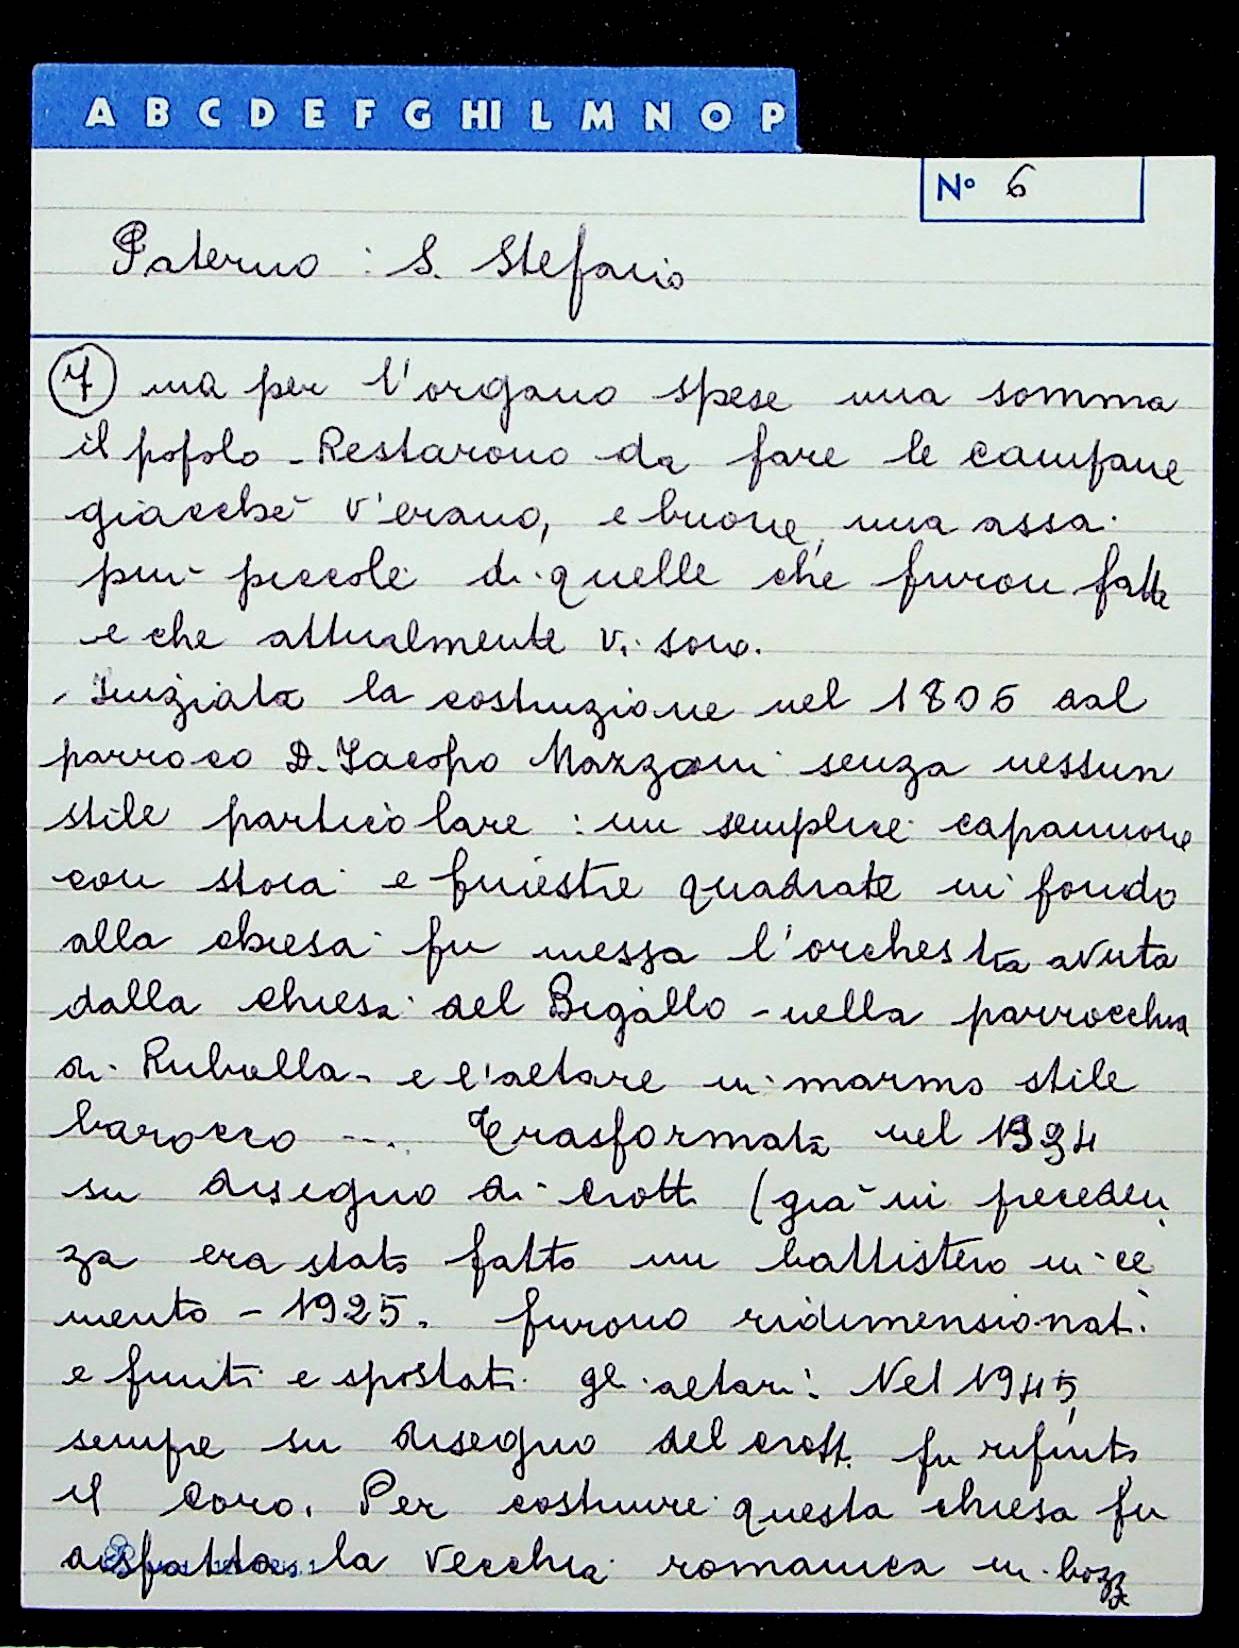 A B C D E F G HI L M N O P
N° 6
Paterno : S. Stefano
7 ma per l'organo spese una somma
il popolo - Restarono da fare le campane
giacché v'erano, e buone, ma assai
più piccole di quelle che furon fatte
e che attualmente vi sono.
Iniziata la costruzione nel 1806 dal
parroco D. Jacopo Mazzoni senza nessun
stile particolare : un semplice capannone
con stoia e finestre quadrate in fondo
alla chiesa fu messa l'orchestra avuta
dalla chiesa del Bigallo - nella parrocchia
di Ruballa - e l'altare in marmo stile
barocco --. Trasformata nel 1934
su disegno di Crott (già in preceden
za era stato fatto un battistero in ce
mento - 1925. furono ridimensionati
e finiti e spostati gli altari. Nel 1945,
sempre su disegno del Crott. fu rifinito
il coro. Per costruire questa chiesa fu
disfatta la vecchia romanica in bozze